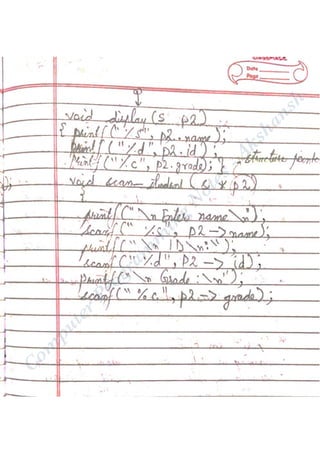 classmate
Date
Page
void display (S p2)
{ printf ("%s", p2.name);
printf ("%d", p2.id);
printf ("%c", p2.grade); }
void scan-student (S * p2)
{
printf ("\n Enter name \n");
scanf (" %s", p2 -> name);
printf ("\n ID \n:");
scanf ("%d", p2 -> id);
printf ("\n Grade : \n");
scanf (" %c", p2 -> grade);